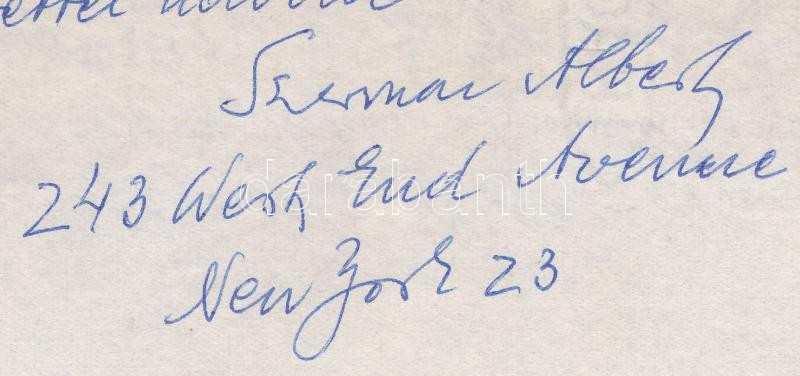 Szirmai Albert
243 West End Avenue
New York 23
darabanth